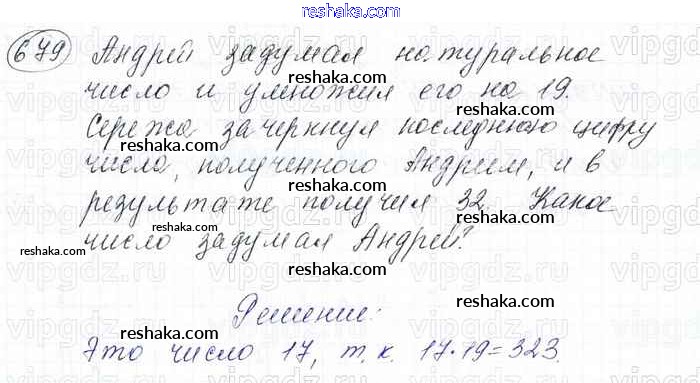 reshaka.com
679 Андрей задумал натуральное
число и умножил его на 19.
Сережа зачеркнул последнюю цифру
числа, полученного Андреем, и в
результате получил 32. Какое
число задумал Андрей?
Решение:
Это число 17, т.к. 17·19=323.
reshaka.com
reshaka.com
reshaka.com
reshaka.com
reshaka.com
reshaka.com
reshaka.com
reshaka.com
reshaka.com
reshaka.com